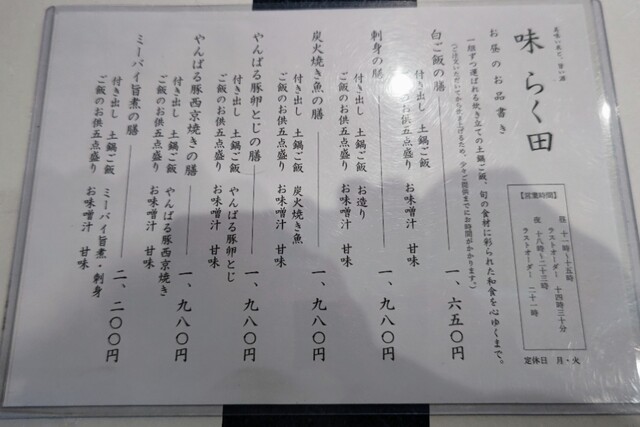 美味い米と、旨い酒
味 らく田
【営業時間】
昼 十一時～十五時
ラストオーダー 十四時三十分
夜 十八時～二十三時
ラストオーダー 二十一時
定休日 月・火
お昼のお品書き
一組ずつ運ばれる炊き立ての土鍋ご飯、旬の食材に彩られた和食を心ゆくまで。
(ご注文いただいてから炊き上げるため、少々ご提供までにお時間がかかります。)
白ご飯の膳 一、六五〇円
付き出し 土鍋ご飯 旬の
ご飯のお供五点盛り お味噌汁 甘味
刺身の膳 一、九八〇円
付き出し 土鍋ご飯 お造り
ご飯のお供五点盛り お味噌汁 甘味
炭火焼き魚の膳 一、九八〇円
付き出し 土鍋ご飯 炭火焼き魚
ご飯のお供五点盛り お味噌汁 甘味
やんばる豚卵とじの膳 一、九八〇円
付き出し 土鍋ご飯 やんばる豚卵とじ
ご飯のお供五点盛り お味噌汁 甘味
やんばる豚西京焼きの膳 一、九八〇円
付き出し 土鍋ご飯 やんばる豚西京焼き
ご飯のお供五点盛り お味噌汁 甘味
ミーバイ旨煮の膳 二、二〇〇円
付き出し 土鍋ご飯 ミーバイ旨煮・刺身
ご飯のお供五点盛り お味噌汁 甘味